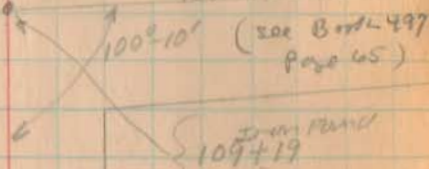 100°-10'
(see Book 497
Page 65)
Iron
109+19